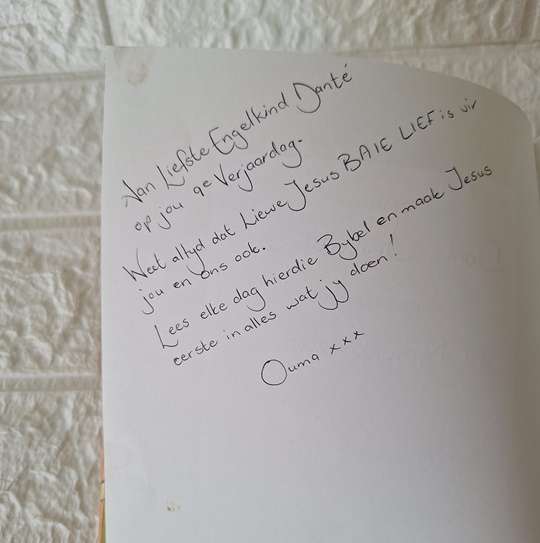 Aan Liefste Engelkind Danté
op jou 9e Verjaardag.
Weet altyd dat Liewe Jesus BAIE LIEF is vir
jou en ons ook.
Lees elke dag hierdie Bybel en maak Jesus
eerste in alles wat jy doen!
Ouma xxx